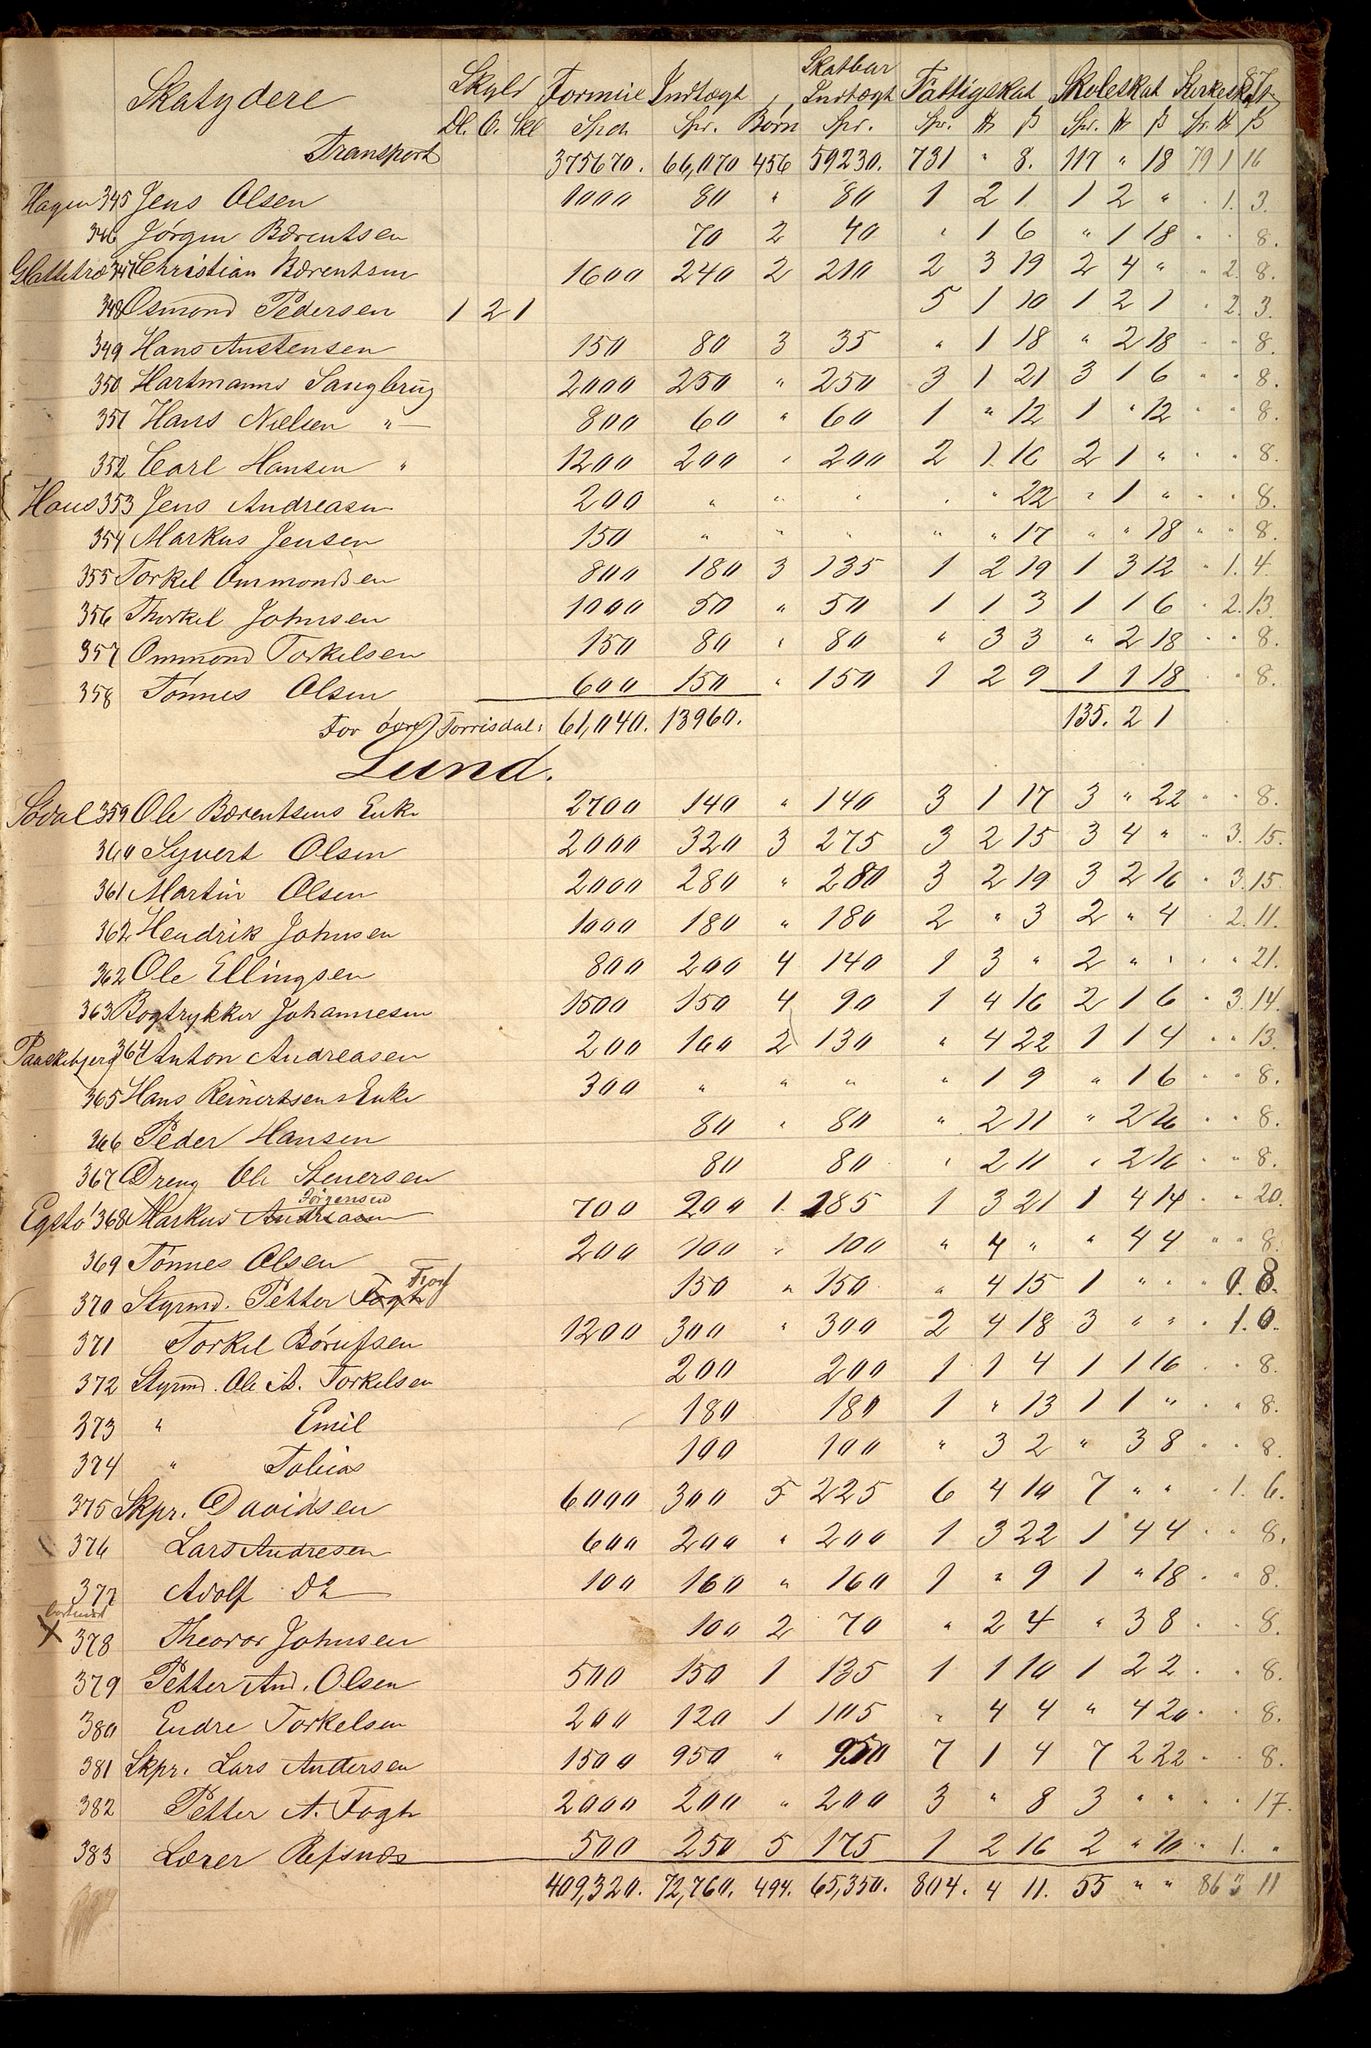 Skatydere Skyld Formue Indtægt Skatbar Indtægt Fattigskat Skoleskat Kirkesk.
Dl. O. Skl Spd. Spr. Børn Spr. Spr. # ß Spr. # ß Spr. # ß
Transport 375670. 66,070 456 59230. 731 " 8. 117 " 18 79 1 16
Hagen 345 Jens Olsen 1000 80 " 80 1 2 1 1 2 " . 1. 3.
346 Jørgen Bærentsen 70 2 40 " 1 6 " 1 18 " " 8.
347 Christian Bærentsen 1600 240 2 210 2 3 19 2 4 " " 2. 8.
348 Osmond Pedersen 1 2 1 5 1 10 1 2 1 . 2. 3.
349 Hans Austensen 150 80 3 35 " 1 18 " 2 18 " " 8.
350 Hartmanns Saugbrug 2000 250 " 250 3 1 21 3 1 6 " " 8.
351 Hans Nielsen " 800 60 " 60 1 " 12 1 " 12 " " 8.
352 Carl Hansen " 1200 200 " 200 2 1 16 2 1 " " " 8.
Haus 353 Jens Andreasen 200 " " " " " 22 " 1 " " " 8.
354 Markus Jensen 150 " " " " " 17 " " 18 " " 8.
355 Torkel Ommondsen 800 180 3 135 1 2 19 1 3 12 " 1. 4.
356 Thorkel Johnsen 1000 50 " 50 1 1 3 1 1 6 " 2. 13.
357 Ommond Torkelsen 150 80 " 80 " 3 3 " 2 18 " " 8.
358 Tønnes Olsen 600 150 " 150 1 2 9 1 1 18 " 8.
For Torrisdal: 61,040. 13960. 135. 2 1
Lund.
Sødal 359 Ole Bærentsens Enke 2700 140 " 140 3 1 17 3 " 22 " " 8.
360 Syvert Olsen 2000 320 3 275 3 2 15 3 4 " " 3. 15.
361 Martin Olsen 2000 280 " 280 3 2 19 3 2 16 " 3. 15.
362 Hendrik Johnsen 1000 180 " 180 2 " 3 2 " 4 . 2. 11.
362 Ole Ellingsen 800 200 4 140 1 3 " 2 " " " " 21.
363 Bogtrykker Johannesen 1500 150 4 90 1 4 16 2 1 6 " 3. 14.
Paaskebjerg 364 Anton Andreasen 200 160 2 130 " 4 22 1 1 4 " " 13.
365 Hans Reinertsens Enke 300 " " " " 1 9 " 1 6 " " 8.
366 Peder Hansen 80 " 80 " 2 11 " 2 16 " " 8.
367 Dreng Ole Steversen 80 80 " 2 11 " 2 16 " " 8.
Jørgensen
Egstø 368 Markus Andreasen 700 200 1 185 1 3 21 1 4 14 " " 20.
369 Tønnes Olsen 200 100 " 100 " 4 " " 4 4 " " 8.
370 Styrmd. Petter Fogh 150 " 150 " 4 15 1 " " " 0. 8.
371 Torkel Børufsen 1200 300 " 300 2 4 18 3 " " " 1. 0.
372 Styrmd. Ole A. Torkelsen 200 200 1 1 4 1 1 16 " " 8.
373 " Emil 180 180 1 " 13 1 1 " " " 8.
374 " Tobias 100 100 " 3 2 " 3 8 " " 8.
375 Skpr. Davidsen 6000 300 5 225 6 4 10 7 " " " 1. 6.
376 Lars Andresen 600 200 " 200 1 3 22 1 4 4 " " 8.
377 Adolf Do 100 160 " 160 1 " 9 1 " 18 " " 8.
378 Theodor Johnsen 100 2 70 " 2 4 " 3 8 " " 8.
379 Petter And. Olsen 500 150 1 135 1 1 10 1 2 2 " " 8.
380 Endre Torkelsen 200 120 1 105 " 4 4 " 4 20 " " 8.
381 Skpr. Lars Andersen 1500 950 " 950 7 1 4 7 2 22 " " 8.
382 Petter A. Fogh 2000 200 " 200 3 " 8 3 " " " " 17.
383 Lærer Refsnæs 500 250 5 175 1 2 16 2 " 10 " 1. "
409,320. 72,760. 494. 65,350. 804. 4 11. 55 " " 86 3 11